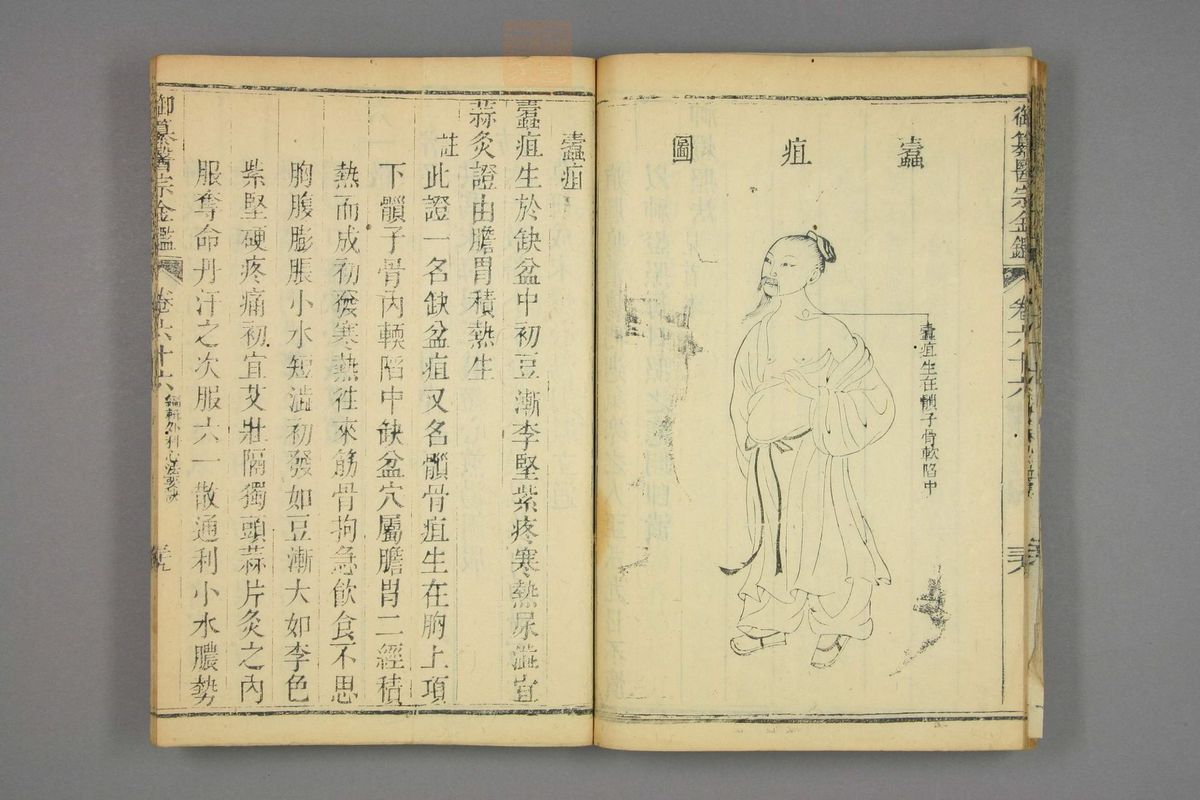 御纂醫宗金鑑
卷六十六
蠹疽圖
蠹疽生在髃子骨軟陷中
蠹疽
蠹疽生於缺盆中初豆漸李堅紫疼寒熱尿澁宜
蒜灸證由膽胃積熱生
註此證一名缺盆疽又名鎖骨疽生在胸上項
下鎖子骨內軟陷中缺盆穴屬膽胃二經積
熱而成初發寒熱往來筋骨拘急飲食不思
胸腹膨脹小水短澁初發如豆漸大如李色
紫堅硬疼痛初宜艾壯隔獨頭蒜片灸之內
服奪命丹汗之次服六一散通利小水膿勢
御纂醫宗金鑑
卷六十六
編輯外科心法要訣